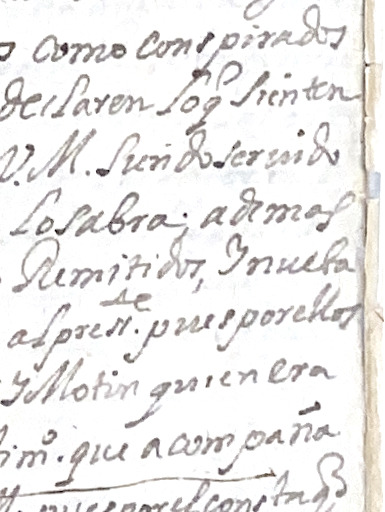 s como conspirados
declaren loq̃ sienten
V. M. siendo servido
lo sabra; ademas
Remitidos, Y nueba
al presẽte. pues por ellos
Y Motin quien era
timº. que acompaña
pues por el consta q̃